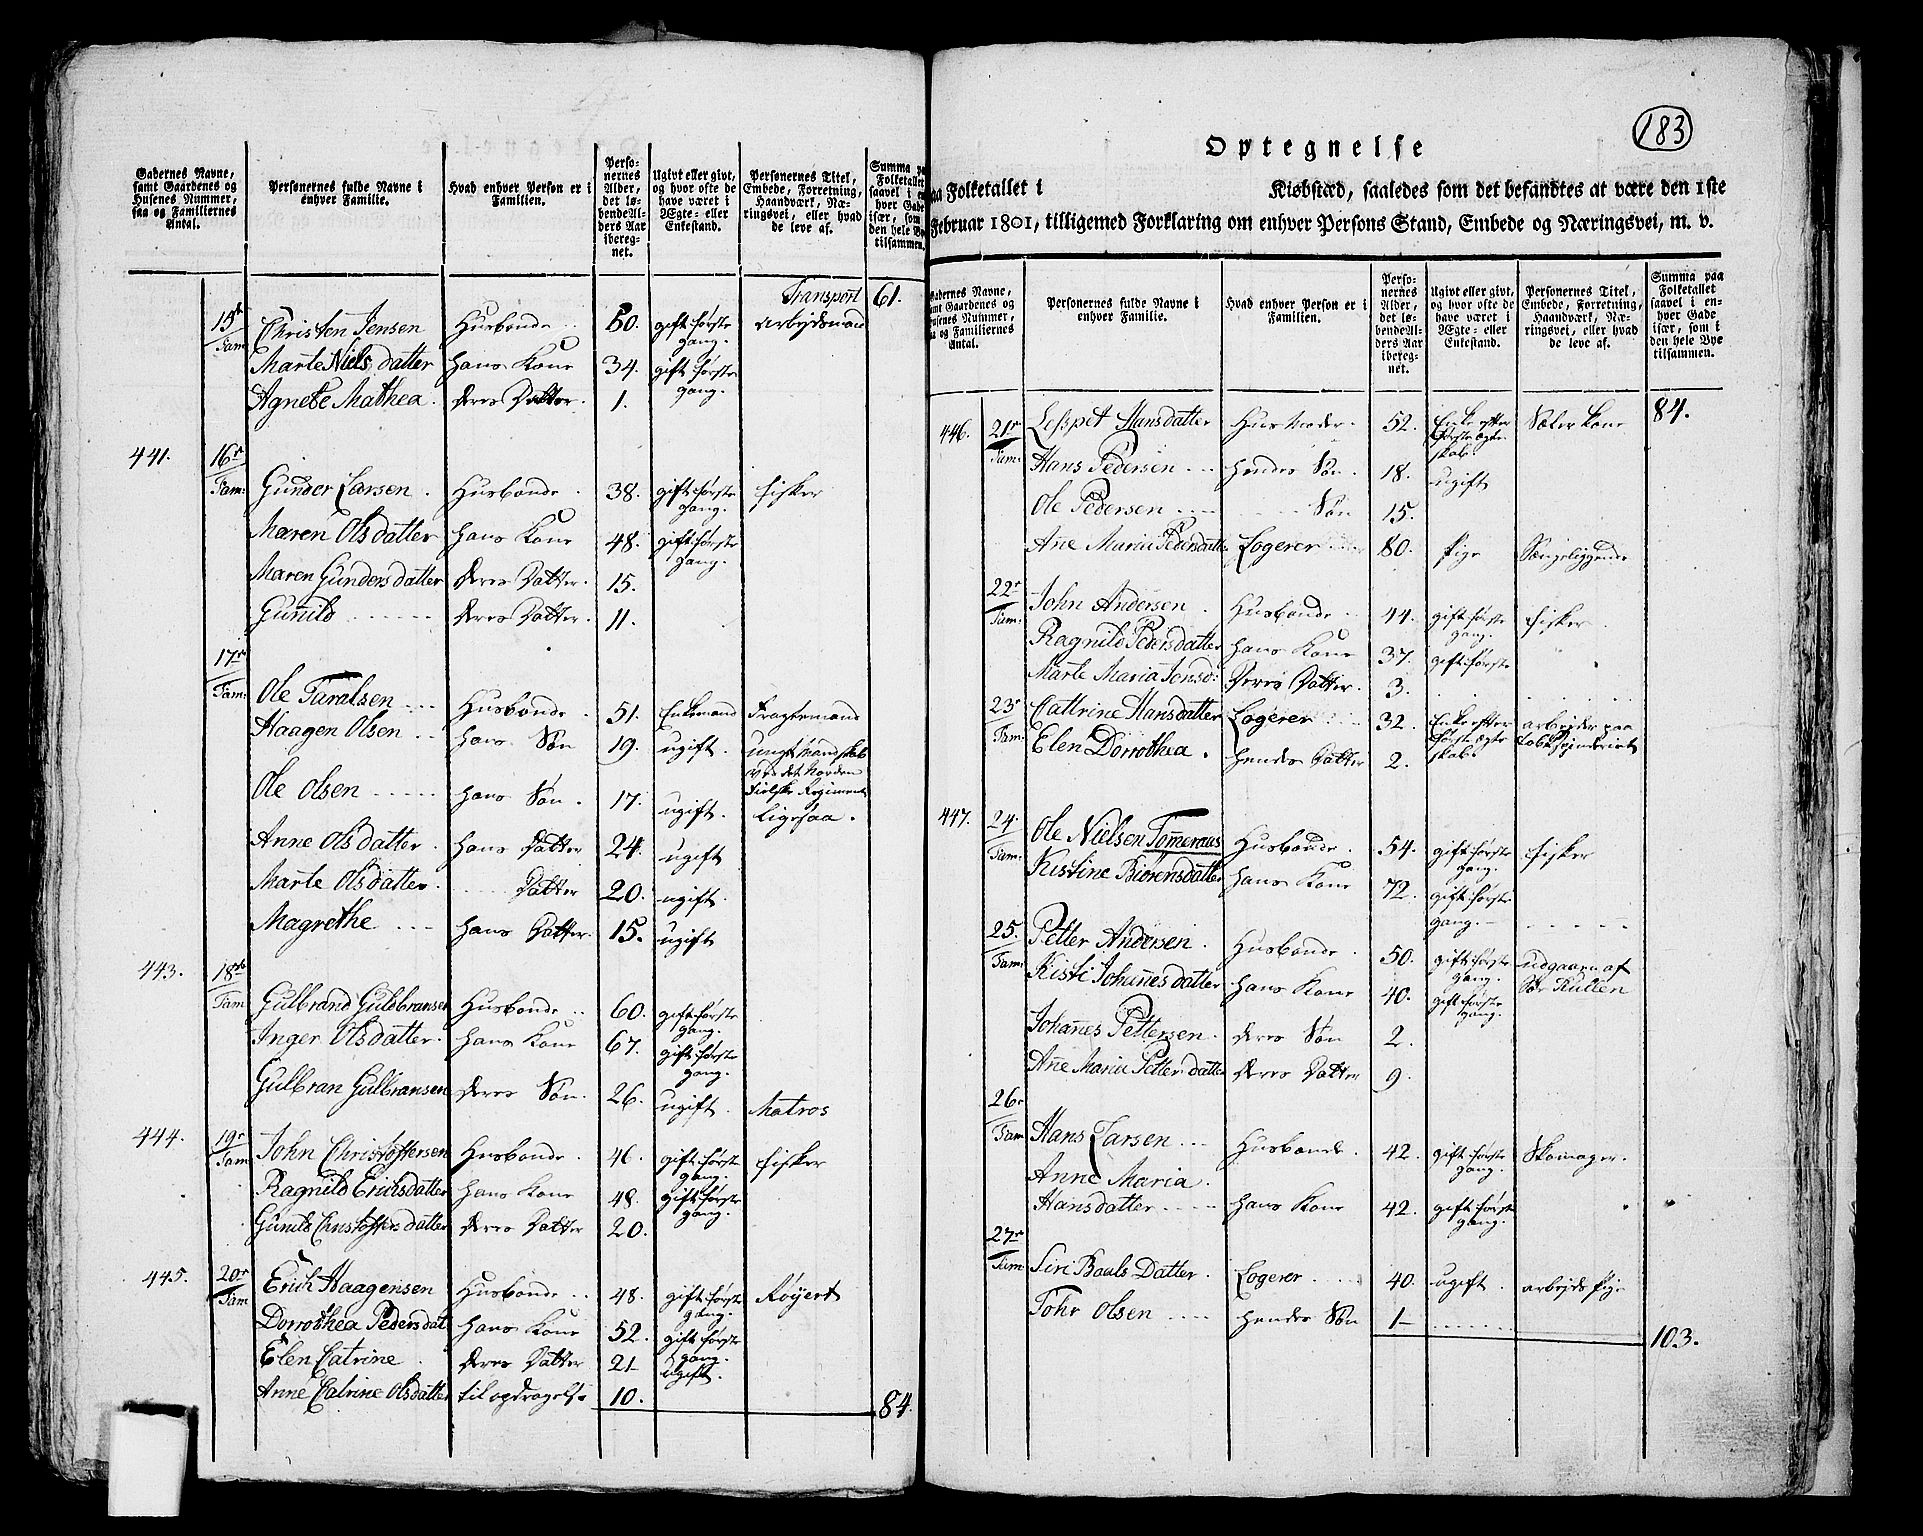 Gadernes Navne, samt Gaardenes og Husenes Nummer, saa og Familiernes Antal.
Personernes fulde Navne i enhver Familie.
Hvad enhver Person er i Familien.
Personernes Alder, det løbende Alders Aar iberegnet.
Ugivt eller givt, og hvor ofte de have været i Ægte- eller Enkestand.
Personernes Titel, Embede, Forretning, Haandværk, Næringsvei, eller hvad de leve af.
Summa paa Folketallet saavel i enhver Gade især, som i den hele Bye tilsammen.
Transport 61.
15de Fam Christen Jensen Husbonde 50. gift første gang. Arbejdsmand
Marte Nielsdatter hans Kone 34. gift første gang.
Agnete Mathea. deres Datter. 1.
441. 16r Fam: Gunder Larsen. Husbonde. 38. gift første gang. fisker
Maren Olsdatter hans Kone 48. gift første gang.
Maren Gundersdatter deres Datter. 15.
Gunnild deres Datter. 11.
17r Fam: Ole Taralsen Husbonde. 51. Enkemand Fragtemand
Haagen Olsen hans Søn 19. ugift. ungt Mandskab ved det Norden Fielske Regiment
Ole Olsen hans Søn. 17. ugift. Ligesaa.
Anne Olsdatter. hans Datter 24. ugift
Marte Olsdatter. Datter 20. ugift.
Magrethe hans Datter. 15. ugift
443. 18de Fam Gulbrand Guldbransen Husbonde 60. gift første gang.
Inger Olsdatter. hans Kone 67. gift første gang.
Gulbran Gulbransen deres Søn. 26. ugift. Matros
444. 19r Fam John Christoffersen Husbonde. 46. gift første gang. fisker
Ragnild Erichsdatter hans Kone 48. gift første gang.
Gunild Christoffersdatter deres Datter 20.
445. 20r Fam Erich Haagensen Husbonde 48. gift første gang. Røyert
Dorrothea Pedersdat hans Kone 52. gift første gang.
Elen Catrine deres Datter 21 ugift.
Anne Catrine Olsdatter til opdragelse 10.
84.
183
Optegnelse
paa Folketallet i Kiøbstæd, saaledes som det befandtes at være den 1ste
Februar 1801, tilligemed Forklaring om enhver Persons Stand, Embede og Næringsvei, m. v.
Gadernes Navne, samt Gaardenes og Husenes Nummer, saa og Familiernes Antal.
Personernes fulde Navne i enhver Familie.
Hvad enhver Person er i Familien.
Personernes Alder, det løbende Alders Aar iberegnet.
Ugivt eller givt, og hvor ofte de have været i Ægte- eller Enkestand.
Personernes Titel, Embede, Forretning, Haandværk, Næringsvei, eller hvad de leve af.
Summa paa Folketallet saavel i enhver Gade især, som i den hele Bye tilsammen.
84.
446. 21r Fam: Lesspet Hansdatter Husmoder. 52. Enke efter første ægteskab. Kone
Hans Pedersen hendes Søn. 18. ugift
Ole Pedersen Søn 15.
Ane Maria Pedersdatter Logerer 80. Pige Sængeliggende
22r Fam: John Andersen. Husbonde 44. gift første gang. fisker.
Ragnild Pedersdatter hans Kone 37. gift første
Marte Maria Jonsd: Deres Datter. 3.
23r Fam: Cattrine Hansdatter Logerer 32. Enke efter første ægteskab arbejder paa
Elen Dorrothea. hendes Datter 2.
447. 24. Fam: Ole Nielsen Tomeraas Husbonde. 54. gift første gang. fisker
Kistine Biørensdatter hans Kone 72. gift første gang.
25. Fam: Petter Andersen. Husbonde. 50. gift første gang. udgaaen af
Kisti Johanesdatter hans Kone 40. gift første gang.
Johanes Pettersen. deres Søn 2.
Ane Maria Petters datter deres Datter 9.
26r Fam Hans Larsen Husbonde. 42. gift første gang. Skomager.
Anne Maria.
Hansdatter hans Kone 42. gift første gang.
27r Fam Siri Pauls Datter. Logerer 40. ugift. arbejds pige
Tohr Olsen hendes Søn 1
103.